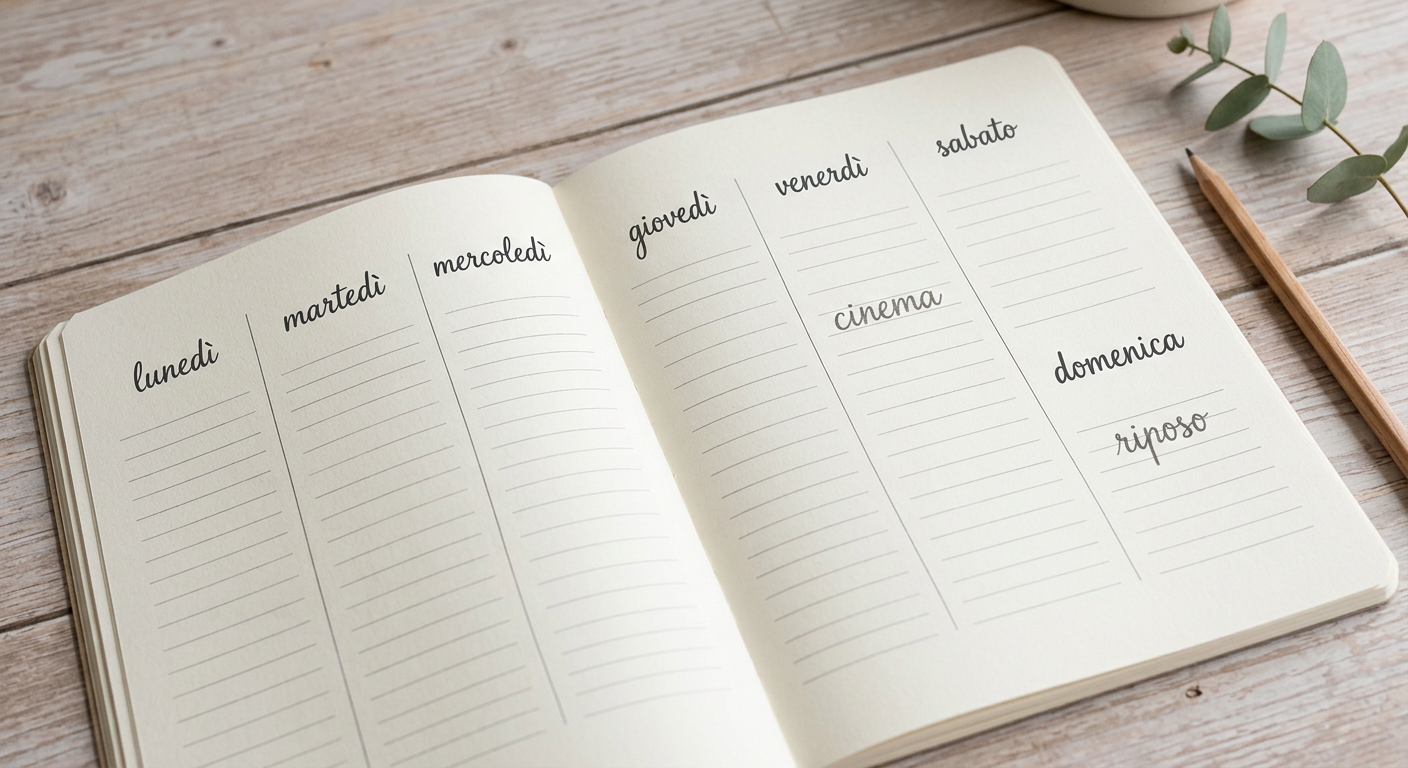 lunedì
martedì
mercoledì
giovedì
venerdì
cinema
sabato
domenica
riposo